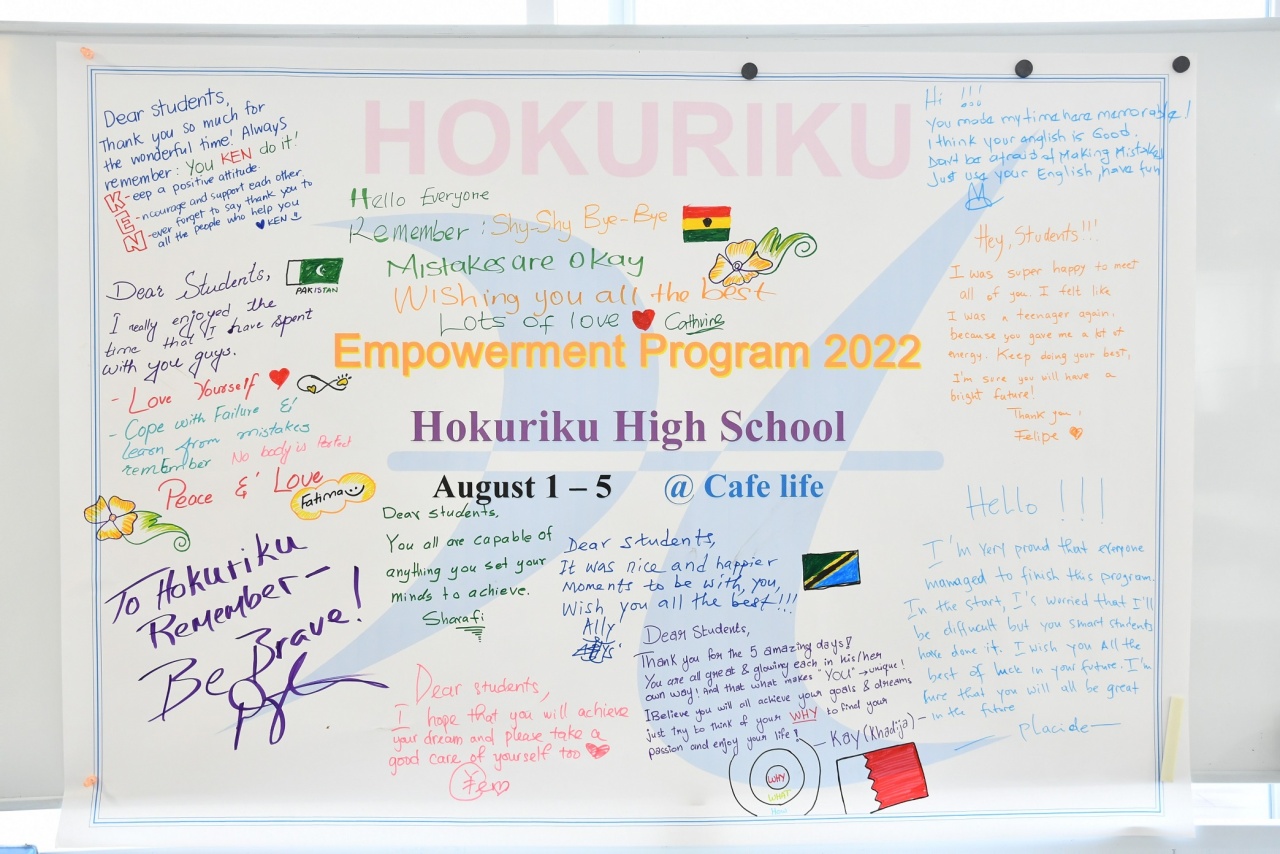 HOKURIKU
Dear students,
Thank you so much for
the wonderful time! Always
remember: You KEN do it!
K-eep a positive attitude
E-ncourage and support each other
N-ever forget to say thank you to
all the people who help you
KEN
Hello Everyone
Remember : Shy-Shy Bye-Bye
Mistakes are okay
Wishing you all the best
Lots of love Cathrine
Hi !!!
You made my time here memorable!
I think your english is Good.
Dont be afraid of Making Mistakes
Just use your English, have fun
Hey, Students!!!
I was super happy to meet
all of you. I felt like
I was a teenager again,
because you gave me a lot of
energy. Keep doing your best,
I'm sure you will have a
bright future!
Thank you,
Felipe
Dear Students,
PAKISTAN
I really enjoyed, the
time that I have spent
with you guys.
- Love Yourself
- Cope with Failure &
learn from mistakes
remEmber No body is Perfect
Peace & Love
Fatima
Empowerment Program 2022
Hokuriku High School
August 1 – 5 @ Cafe life
To Hokuriku
Remember –
Be Brave!
Dear students,
You all are capable of
anything you set your
minds to achieve.
Sharafi
Dear students,
It was nice and happier
Moments to be with, you,
Wish you all the best!!!
Ally
Hello !!!
I'm very proud that everyone
managed to finish this program.
In the start, I's worried that I'll
be diffucult but you smart students
have done it. I wish you All the
best of luck in your future. I'm
sure that you will all be great
in the future
Placide
Dear students,
I hope that you will achieve
your dream and please take a
good care of yourself too
Dear Students,
Thank you for the 5 amazing days!
You are all great & glowing each in his/her
own way! And that what makes "YOU" → unique!
I Believe you will all achieve your goals & dreams
just try to think of your WHY to find your
passion and enjoy your life!
– Kay (Khadija) –
WHY
WHAT
How